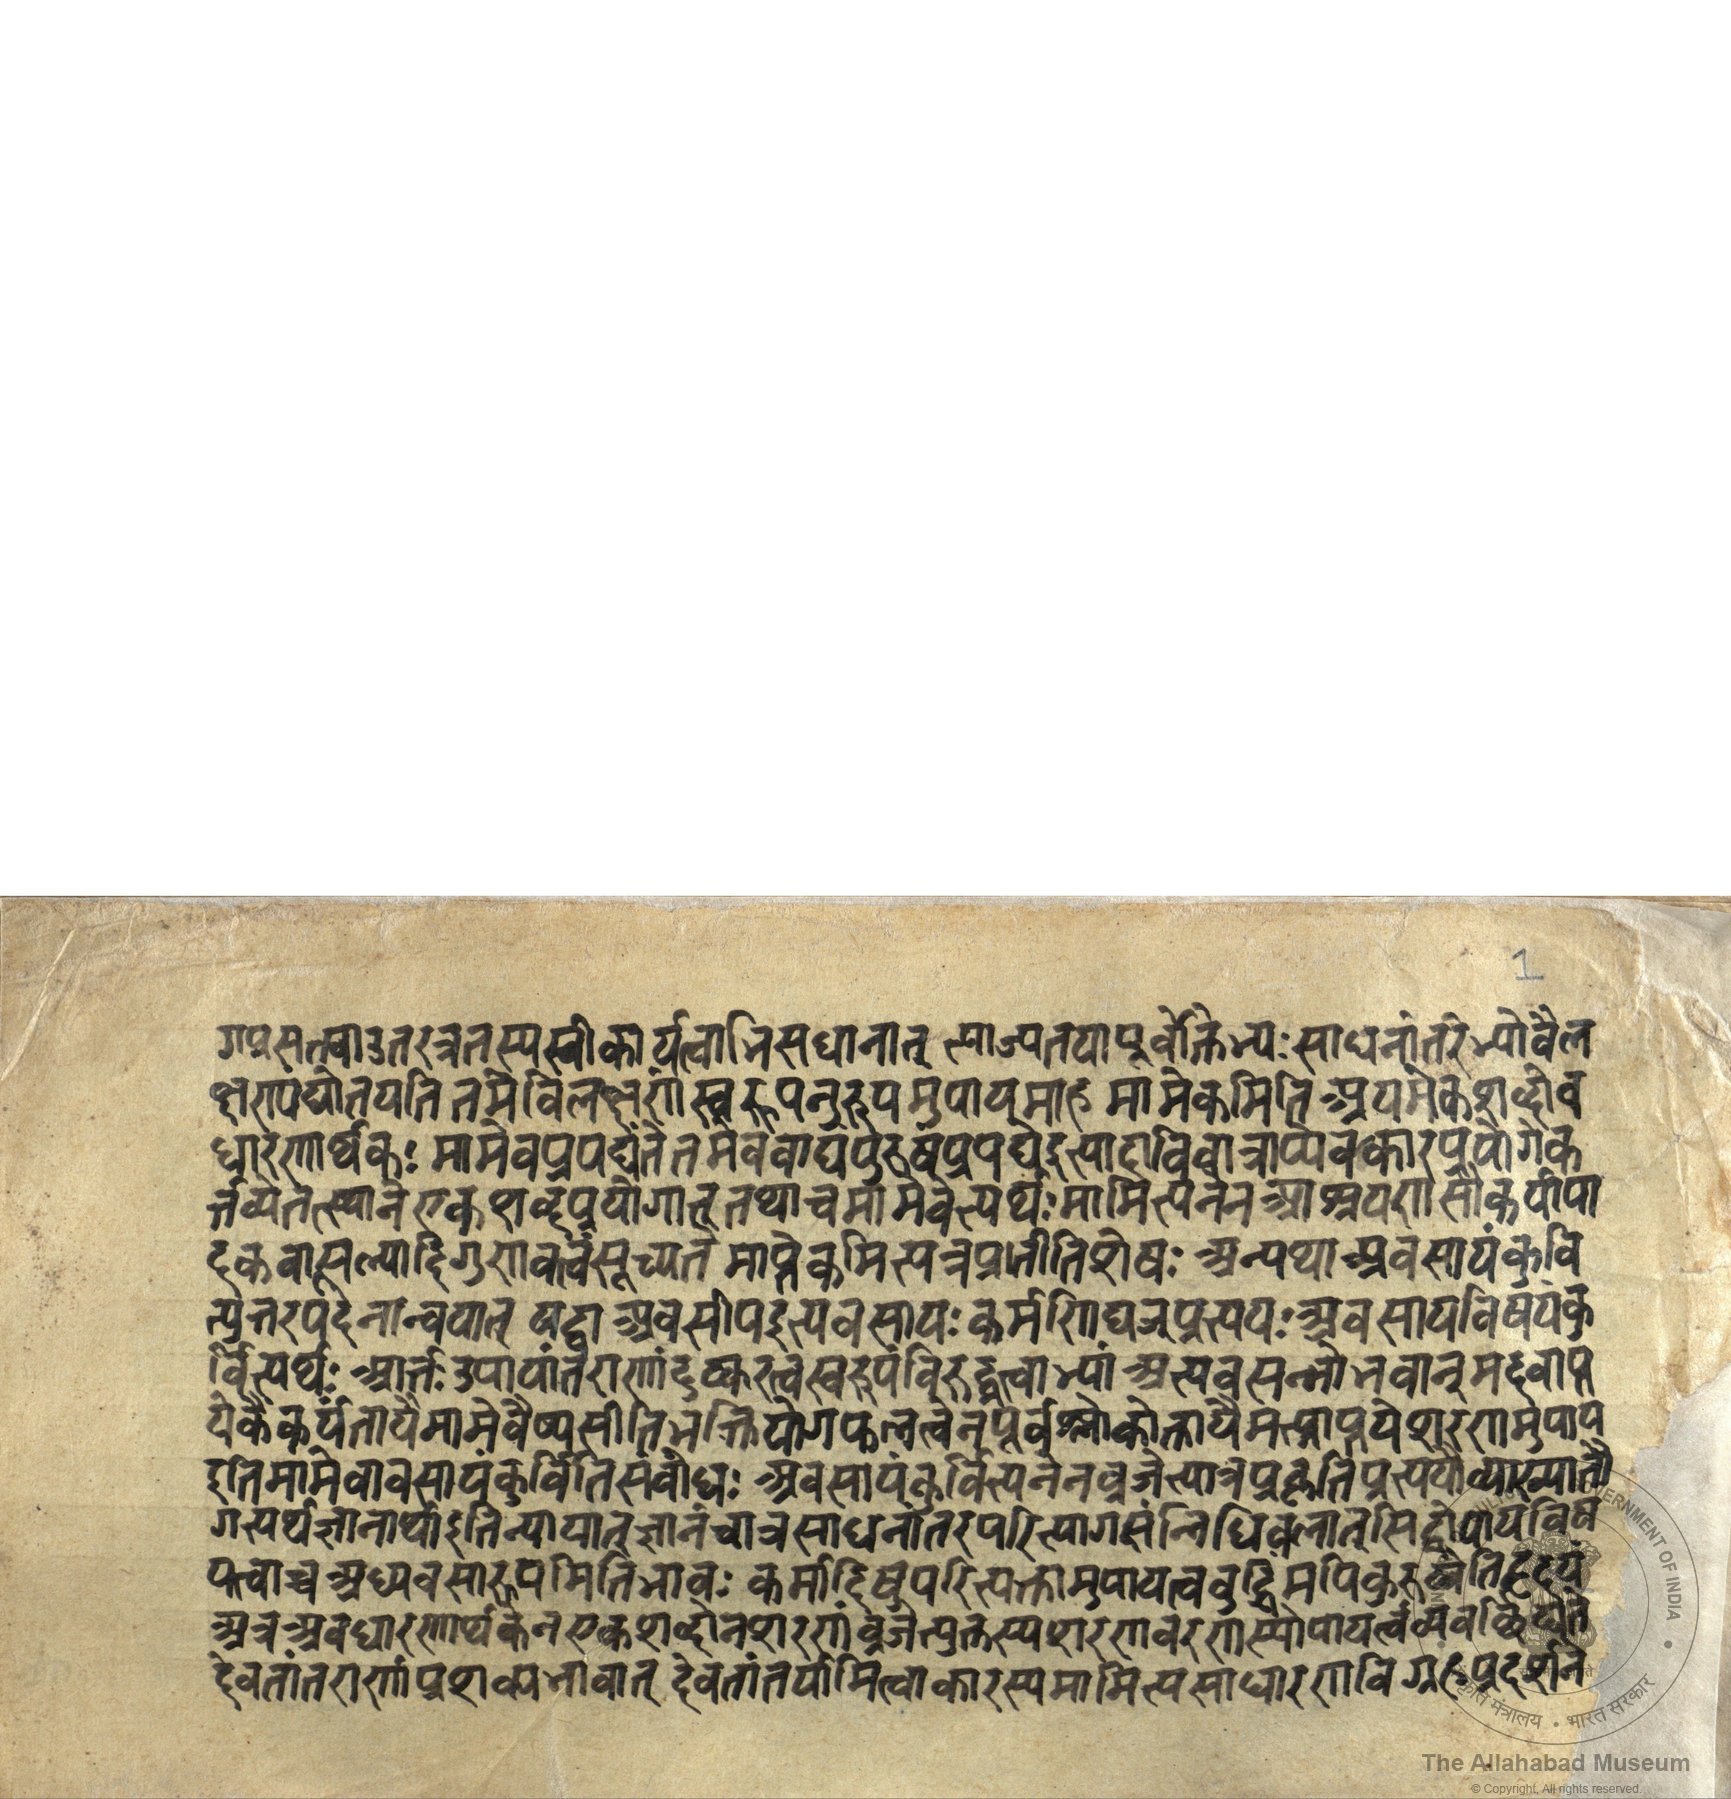 1
गप्रसतवाउतरत्रतस्यस्वीकार्यत्वाभिसधानात् त्याज्यतयापूर्वोक्तेभ्यः साधनांतरेभ्योवैल
क्षण्यद्योतयति तमेविलक्षणंस्वरूपनुरूपमुपायमाह मामेकमिति अयमेकशब्दोव
धारणार्थकः मामेवप्रपद्यंतेतमेवचाद्यंपुरुषंप्रपद्यइत्यादाविवात्राप्येवकारप्रयोगेक
र्त्तव्येतत्स्थाने एकशब्दप्रयोगात् तथाचमामेवेत्यर्थः मामित्यनेन आश्रयणसौकर्यापा
दकवात्सल्यादिगुणवत्वंसूच्यते माप्तेकमित्यत्रप्राप्तीतिशेषः अन्यथा अवसायंकुर्वि
त्युत्तरपदेनानन्वयात् यद्वा अवसीयइत्यवसायः कर्मणिघञ्प्रत्ययः अवसायविषयंकु
र्वित्यर्थः आर्त्तः उपायांतराणांदुष्करत्वस्वरूपविरुद्धत्वाभ्यां अत्यवसन्नोभवान् मदवाप्त
येकैंकर्यंतायैमामेवैष्यसीतिभक्तियोगफलत्वेनपूर्वश्लोकोक्तायैमत्प्राप्तयेशरणमुपाय
इतिमामेवावसायंकुर्वितिसंबोधः अवसायंकुर्वित्यनेनव्रजेत्यात्रप्रकृतिप्रत्ययौव्याख्यातौ
गत्यर्थज्ञानार्थाइतिन्यायात् ज्ञानंचात्रसाधनांतरपरित्यागसंन्निधिबलात् सिद्धोपायविष
यत्वाच्च अध्यवसारूपमितिभावः कर्मादिषुपरित्यक्तामुपायत्वबुद्धिमपिकुरुष्वेतिहृदयं
अत्र अवधारणार्थकेन एकशब्देनशरणंव्रजेत्युक्तस्यशरणवरणस्योपायत्वंव्यवच्छिद्यते
देवतांतराणांप्रशक्त्यभावात् देवतांतर्यामित्वाकारस्यमामित्यसाधारणविग्रहप्रदर्शने
The Allahabad Museum
© Copyright, All rights reserved.